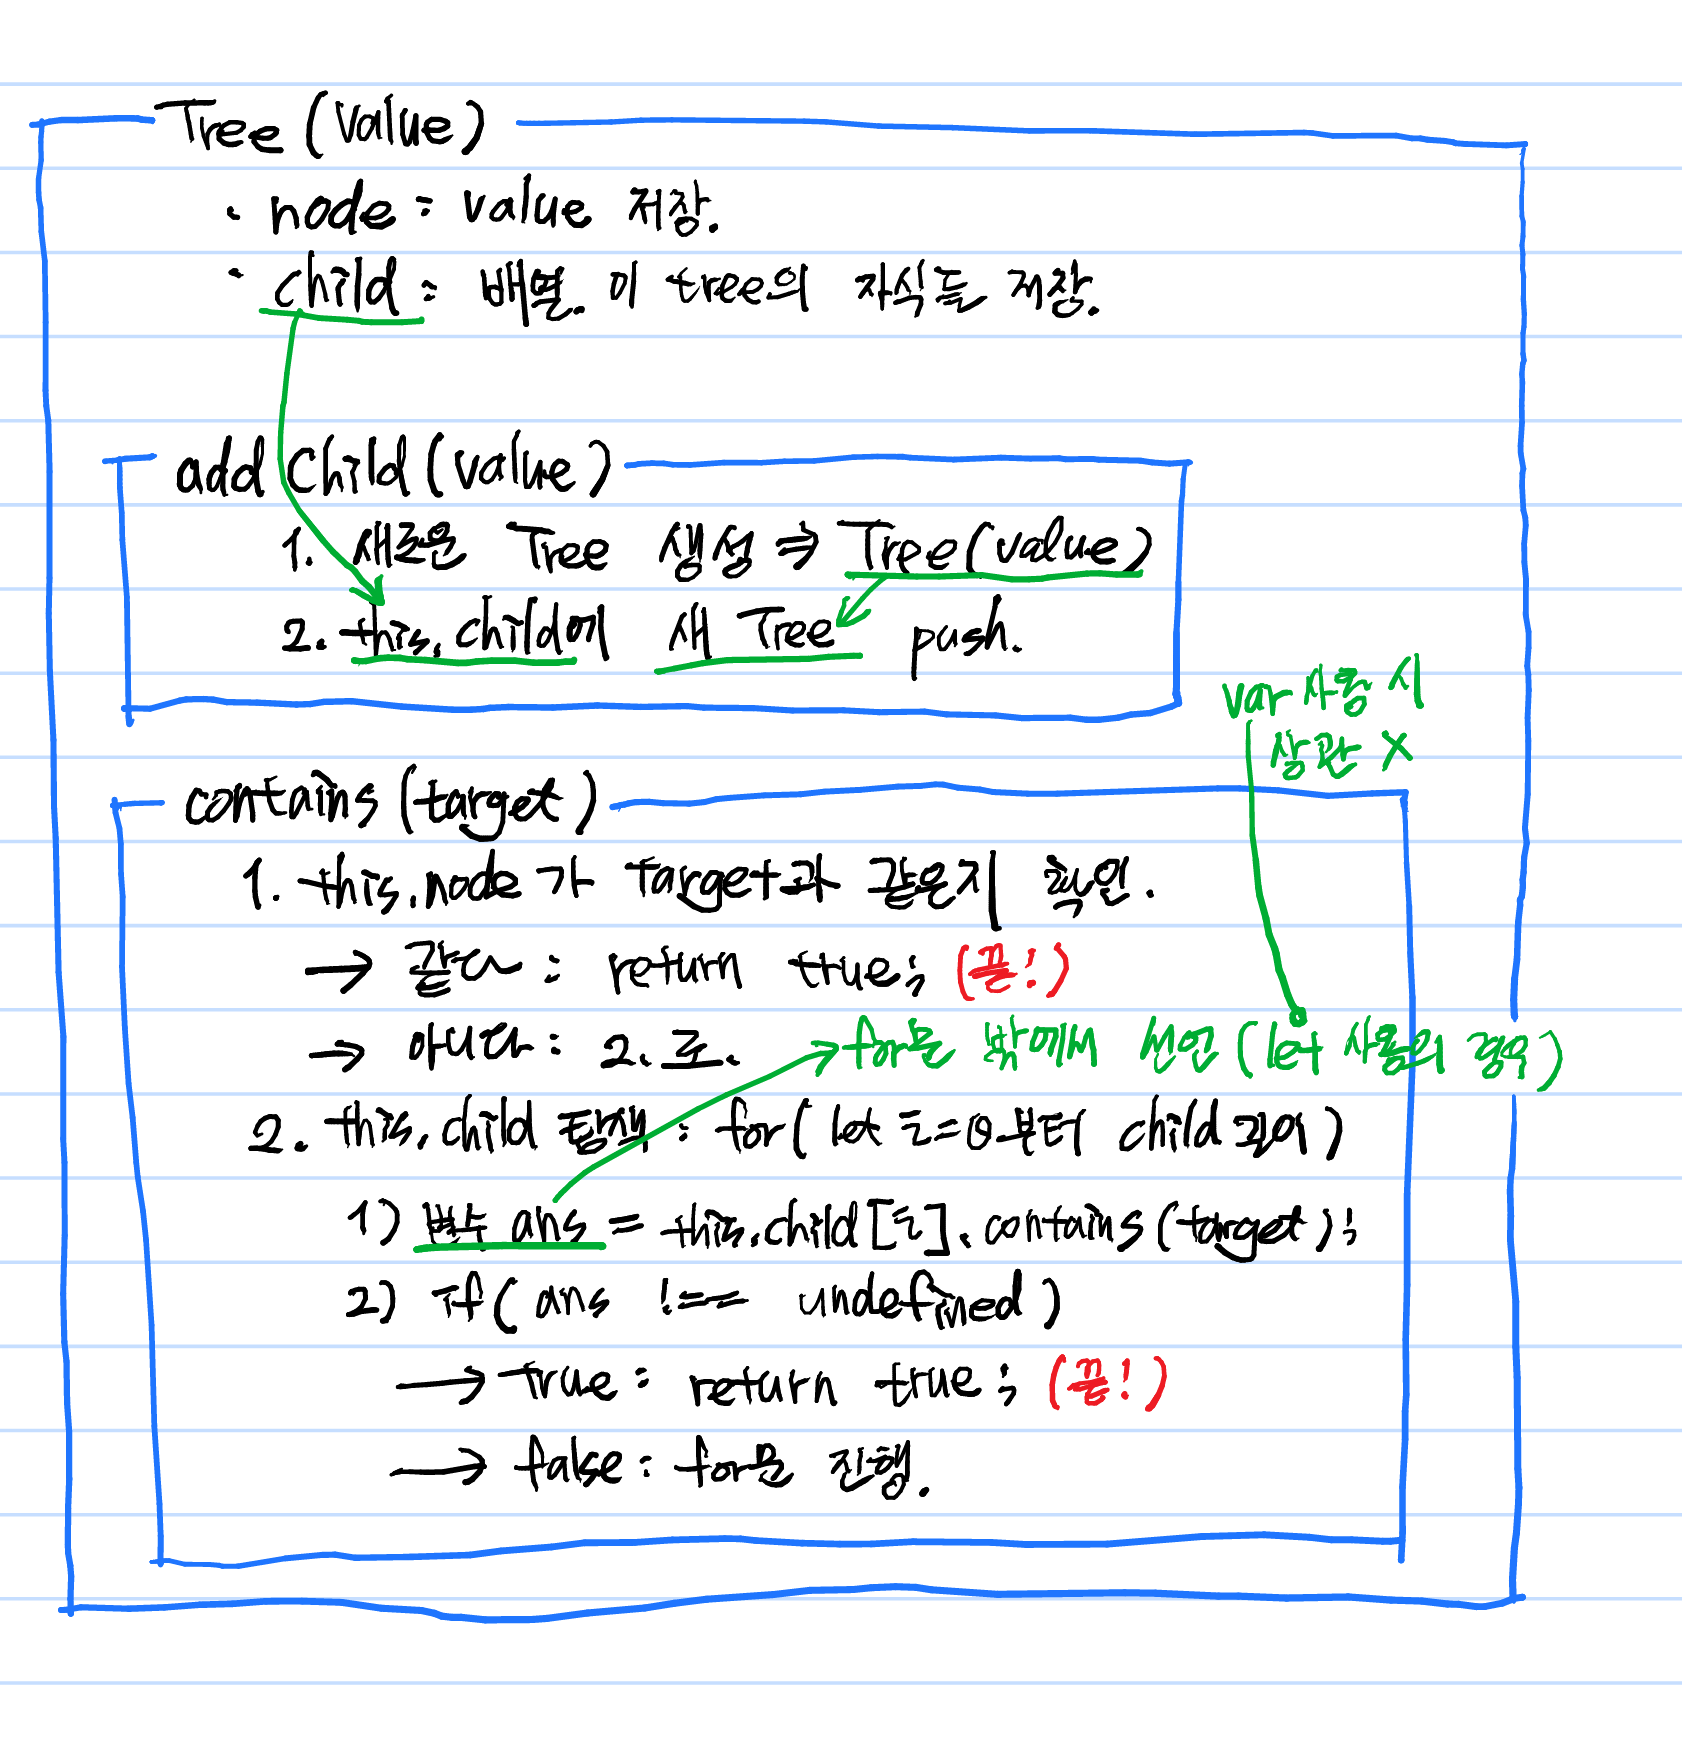 Tree (Value)
· node : value 저장.
· child : 배열. 이 tree의 자식들 저장.
add Child (value)
1. 새로운 Tree 생성 ⇒ Tree(value)
2. this.child에 새 Tree push.
var 사용 시
상관 X
contains (target)
1. this.node가 target과 같은지 확인.
→ 같다 : return true; (끝!)
→ 아니다 : 2. 로.
for문 밖에서 선언 (let 사용의 경우)
2. this.child 탐색 : for( let i=0부터 child 길이)
1) 변수 ans = this.child[i].contains(target);
2) if( ans !== undefined )
→ true : return true ; (끝!)
→ false : for문 진행.